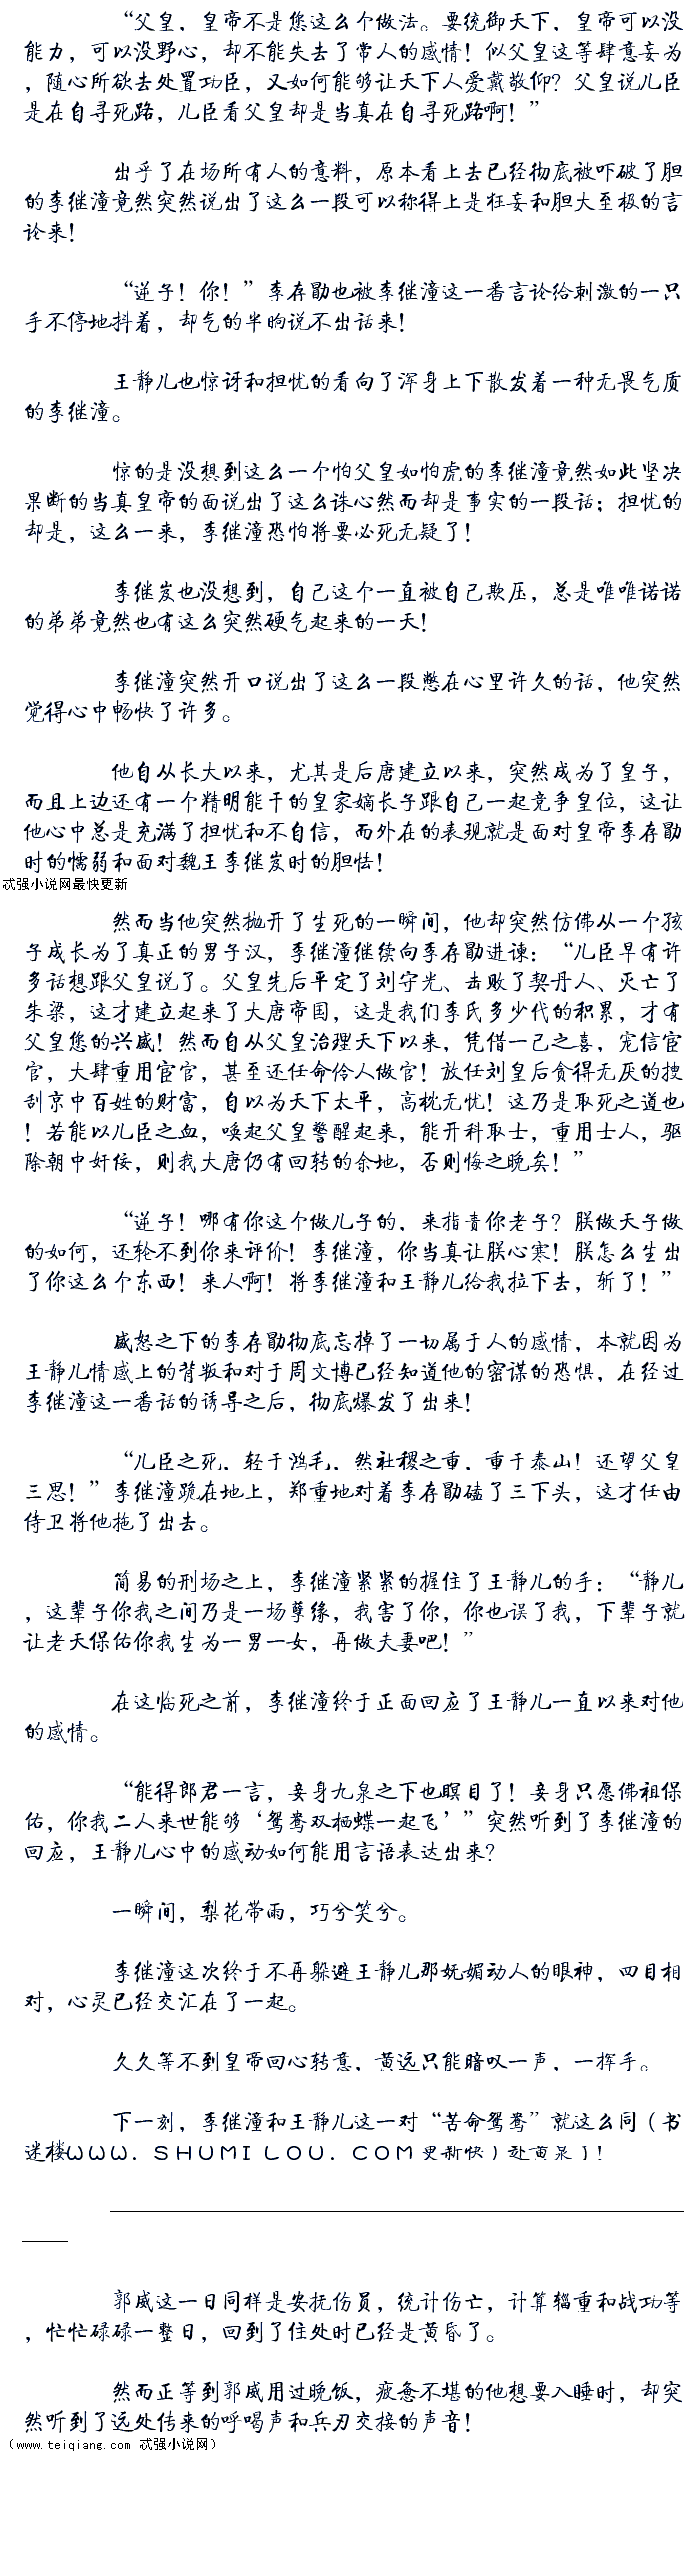 “父皇，皇帝不是您这么个做法。要统御天下，皇帝可以没
能力，可以没野心，却不能失去了常人的感情！似父皇这等肆意妄为
，随心所欲去处置功臣，又如何能够让天下人爱戴敬仰？父皇说儿臣
是在自寻死路，儿臣看父皇却是当真在自寻死路啊！”
出乎了在场所有人的意料，原本看上去已经彻底被吓破了胆
的李继潼竟然突然说出了这么一段可以称得上是狂妄和胆大至极的言
论来！
“逆子！你！”李存勖也被李继潼这一番言论给刺激的一只
手不停地抖着，却气的半晌说不出话来！
王静儿也惊讶和担忧的看向了浑身上下散发着一种无畏气质
的李继潼。
惊的是没想到这么一个怕父皇如怕虎的李继潼竟然如此坚决
果断的当真皇帝的面说出了这么诛心然而却是事实的一段话；担忧的
却是，这么一来，李继潼恐怕将要必死无疑了！
李继岌也没想到，自己这个一直被自己欺压，总是唯唯诺诺
的弟弟竟然也有这么突然硬气起来的一天！
李继潼突然开口说出了这么一段憋在心里许久的话，他突然
觉得心中畅快了许多。
他自从长大以来，尤其是后唐建立以来，突然成为了皇子，
而且上边还有一个精明能干的皇家嫡长子跟自己一起竞争皇位，这让
他心中总是充满了担忧和不自信，而外在的表现就是面对皇帝李存勖
时的懦弱和面对魏王李继岌时的胆怯！
忒强小说网最快更新
然而当他突然抛开了生死的一瞬间，他却突然仿佛从一个孩
子成长为了真正的男子汉，李继潼继续向李存勖进谏：“儿臣早有许
多话想跟父皇说了。父皇先后平定了刘守光、击败了契丹人、灭亡了
朱梁，这才建立起来了大唐帝国，这是我们李氏多少代的积累，才有
父皇您的兴盛！然而自从父皇治理天下以来，凭借一己之喜，宠信宦
官，大肆重用宦官，甚至还任命伶人做官！放任刘皇后贪得无厌的搜
刮京中百姓的财富，自以为天下太平，高枕无忧！这乃是取死之道也
！若能以儿臣之血，唤起父皇警醒起来，能开科取士，重用士人，驱
除朝中奸佞，则我大唐仍有回转的余地，否则悔之晚矣！”
“逆子！哪有你这个做儿子的，来指责你老子？朕做天子做
的如何，还轮不到你来评价！李继潼，你当真让朕心寒！朕怎么生出
了你这么个东西！来人啊！将李继潼和王静儿给我拉下去，斩了！”
盛怒之下的李存勖彻底忘掉了一切属于人的感情，本就因为
王静儿情感上的背叛和对于周文博已经知道他的密谋的恐惧，在经过
李继潼这一番话的诱导之后，彻底爆发了出来！
“儿臣之死，轻于鸿毛，然社稷之重，重于泰山！还望父皇
三思！”李继潼跪在地上，郑重地对着李存勖磕了三下头，这才任由
侍卫将他拖了出去。
简易的刑场之上，李继潼紧紧的握住了王静儿的手：“静儿
，这辈子你我之间乃是一场孽缘，我害了你，你也误了我，下辈子就
让老天保佑你我生为一男一女，再做夫妻吧！”
在这临死之前，李继潼终于正面回应了王静儿一直以来对他
的感情。
“能得郎君一言，妾身九泉之下也瞑目了！妾身只愿佛祖保
佑，你我二人来世能够‘鸳鸯双栖蝶一起飞’”突然听到了李继潼的
回应，王静儿心中的感动如何能用言语表达出来？
一瞬间，梨花带雨，巧兮笑兮。
李继潼这次终于不再躲避王静儿那妩媚动人的眼神，四目相
对，心灵已经交汇在了一起。
久久等不到皇帝回心转意，黄远只能暗叹一声，一挥手。
下一刻，李继潼和王静儿这一对“苦命鸳鸯”就这么同（书
迷楼ＷＷＷ．ＳＨＵＭＩＬＯＵ．ＣＯＭ更新快）赴黄泉了！
郭威这一日同样是安抚伤员，统计伤亡，计算辎重和战功等
，忙忙碌碌一整日，回到了住处时已经是黄昏了。
然而正等到郭威用过晚饭，疲惫不堪的他想要入睡时，却突
然听到了远处传来的呼喝声和兵刃交接的声音！
（www.teiqiang.com 忒强小说网）